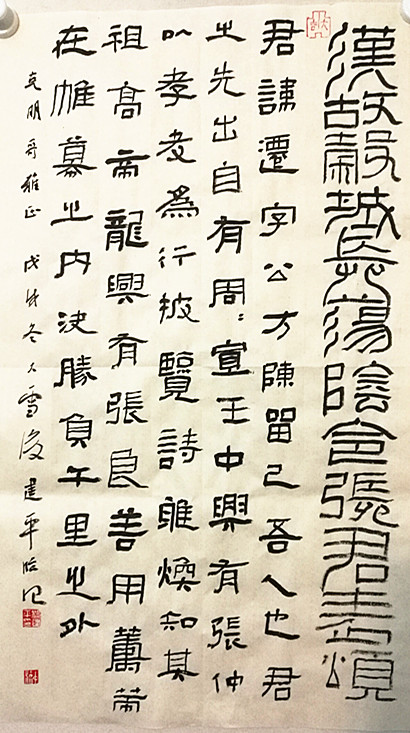 漢故穀城長蕩陰令張君表頌
君諱遷字公方陳留己吾人也君
之先出自有周周宣王中興有張仲
以孝友為行披覽詩雅煥知其
祖高帝龍興有張良善用籌策
在帷幕之内決勝負千里之外
克明哥雅正 戊戌冬大雪後建平臨記